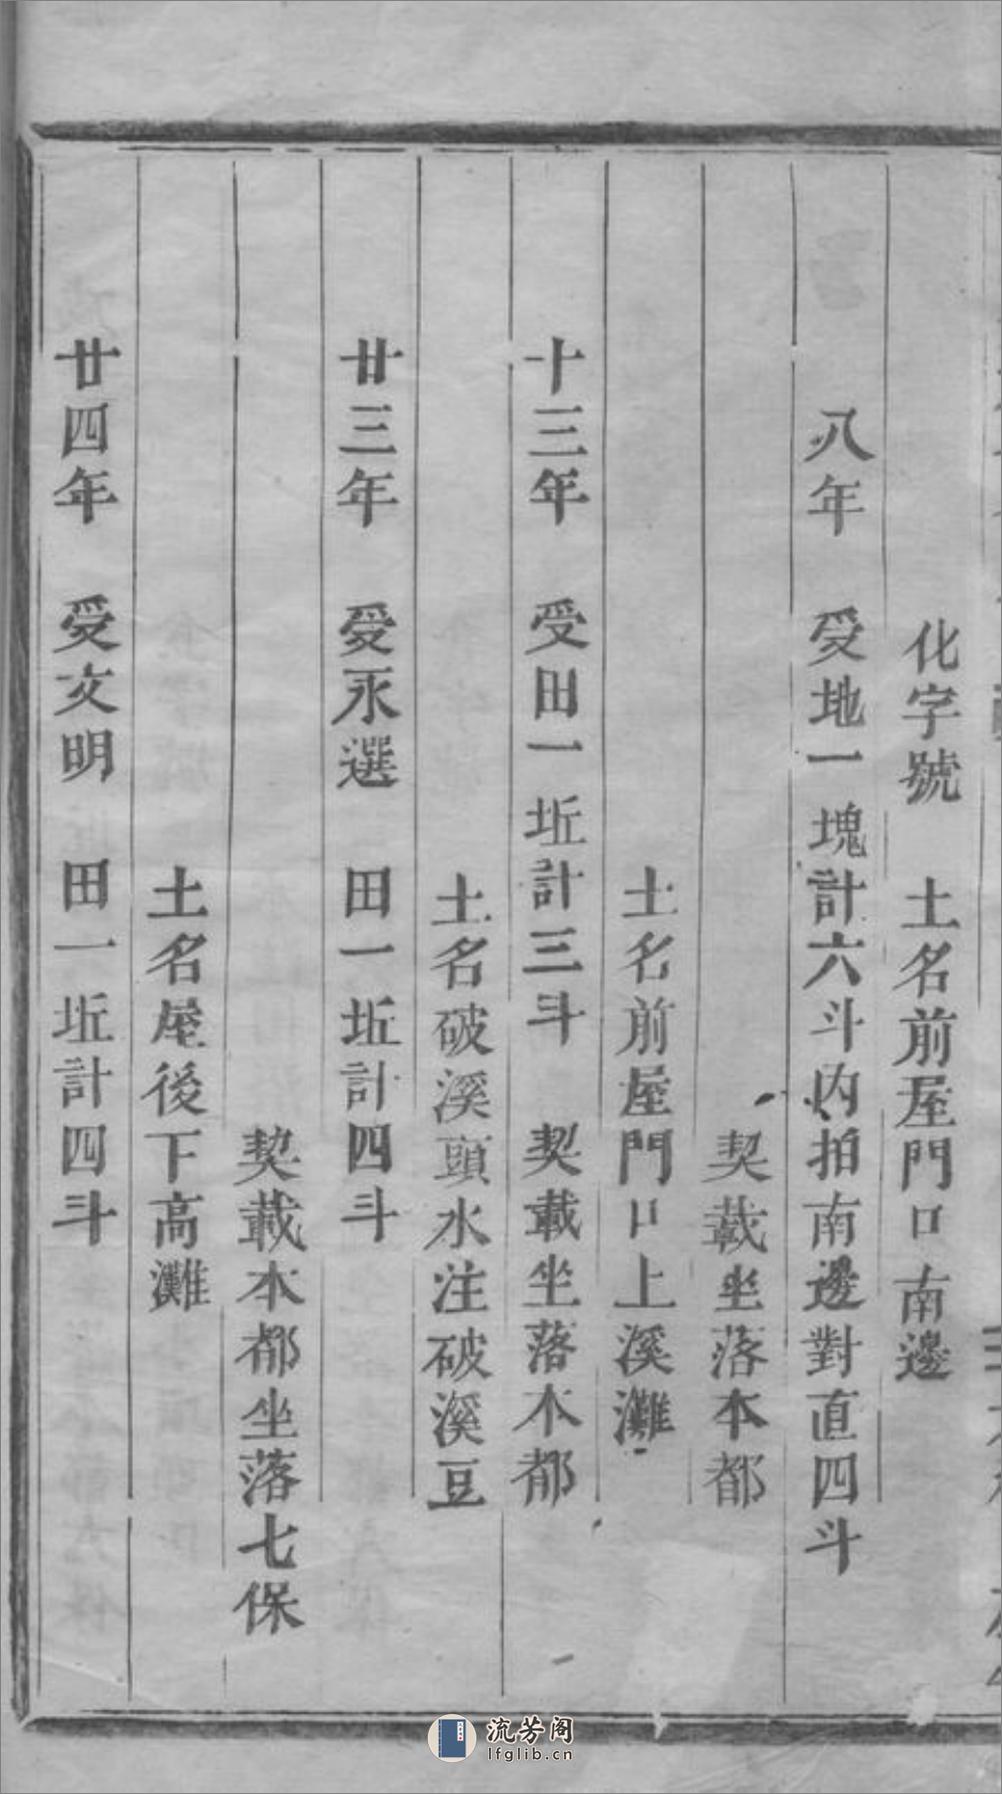 化字號　土名前屋門口南邊
八年　受地一塊計六斗內拍南邊對直四斗
契載坐落本都
土名前屋門口上溪灘
十三年　受田一坵計三斗　契載坐落本都
土名破溪頭水注破溪豆
廿三年　受永選　田一坵計四斗
契載本都坐落七保
土名屋後下高灘
廿四年　受文明　田一坵計四斗
流芳阁
lfglib.cn